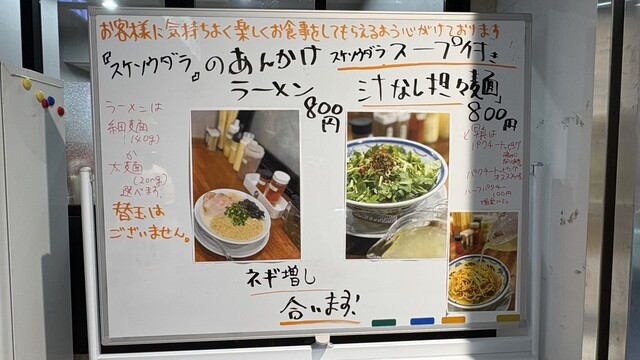 お客様に気持ちよく楽しくお食事をしてもらえるよう心がけております
『スケソウダラ』のあんかけ
ラーメン
800円
スケソウダラスープ付き
汁なし担々麺」
800円
ラーメンは
細麺
(140g)
か
太麺
(200g)
選べます。
替玉は
ございません。
パクチー
ハーフパクチー
100円
ネギ増し
合います!